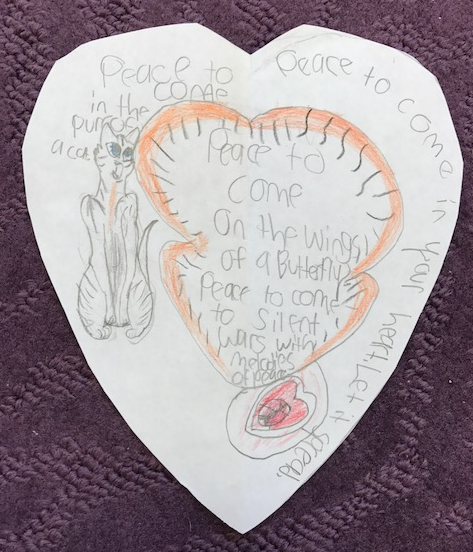 Peace to
come
in the
purr of
a cat
Peace to
Come
On the wings
of a Butterfly
Peace to come
to silent
wars with
melodies
of peace
Peace to come in your heart Let it spread